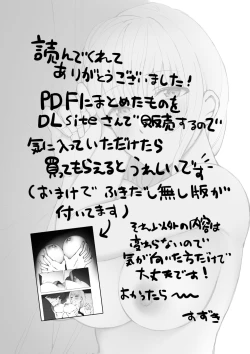 読んでくれて
ありがとうございました!
PDFにまとめたものを
DLsiteさんで販売するので
気に入っていただけたら
買ってもらえるとうれしいです
(おまけでふきだし無し版が
付いてます)
それ以外の内容は
変わらないので
気が向いた方だけで
大丈夫です!
よかったら〜
おずき